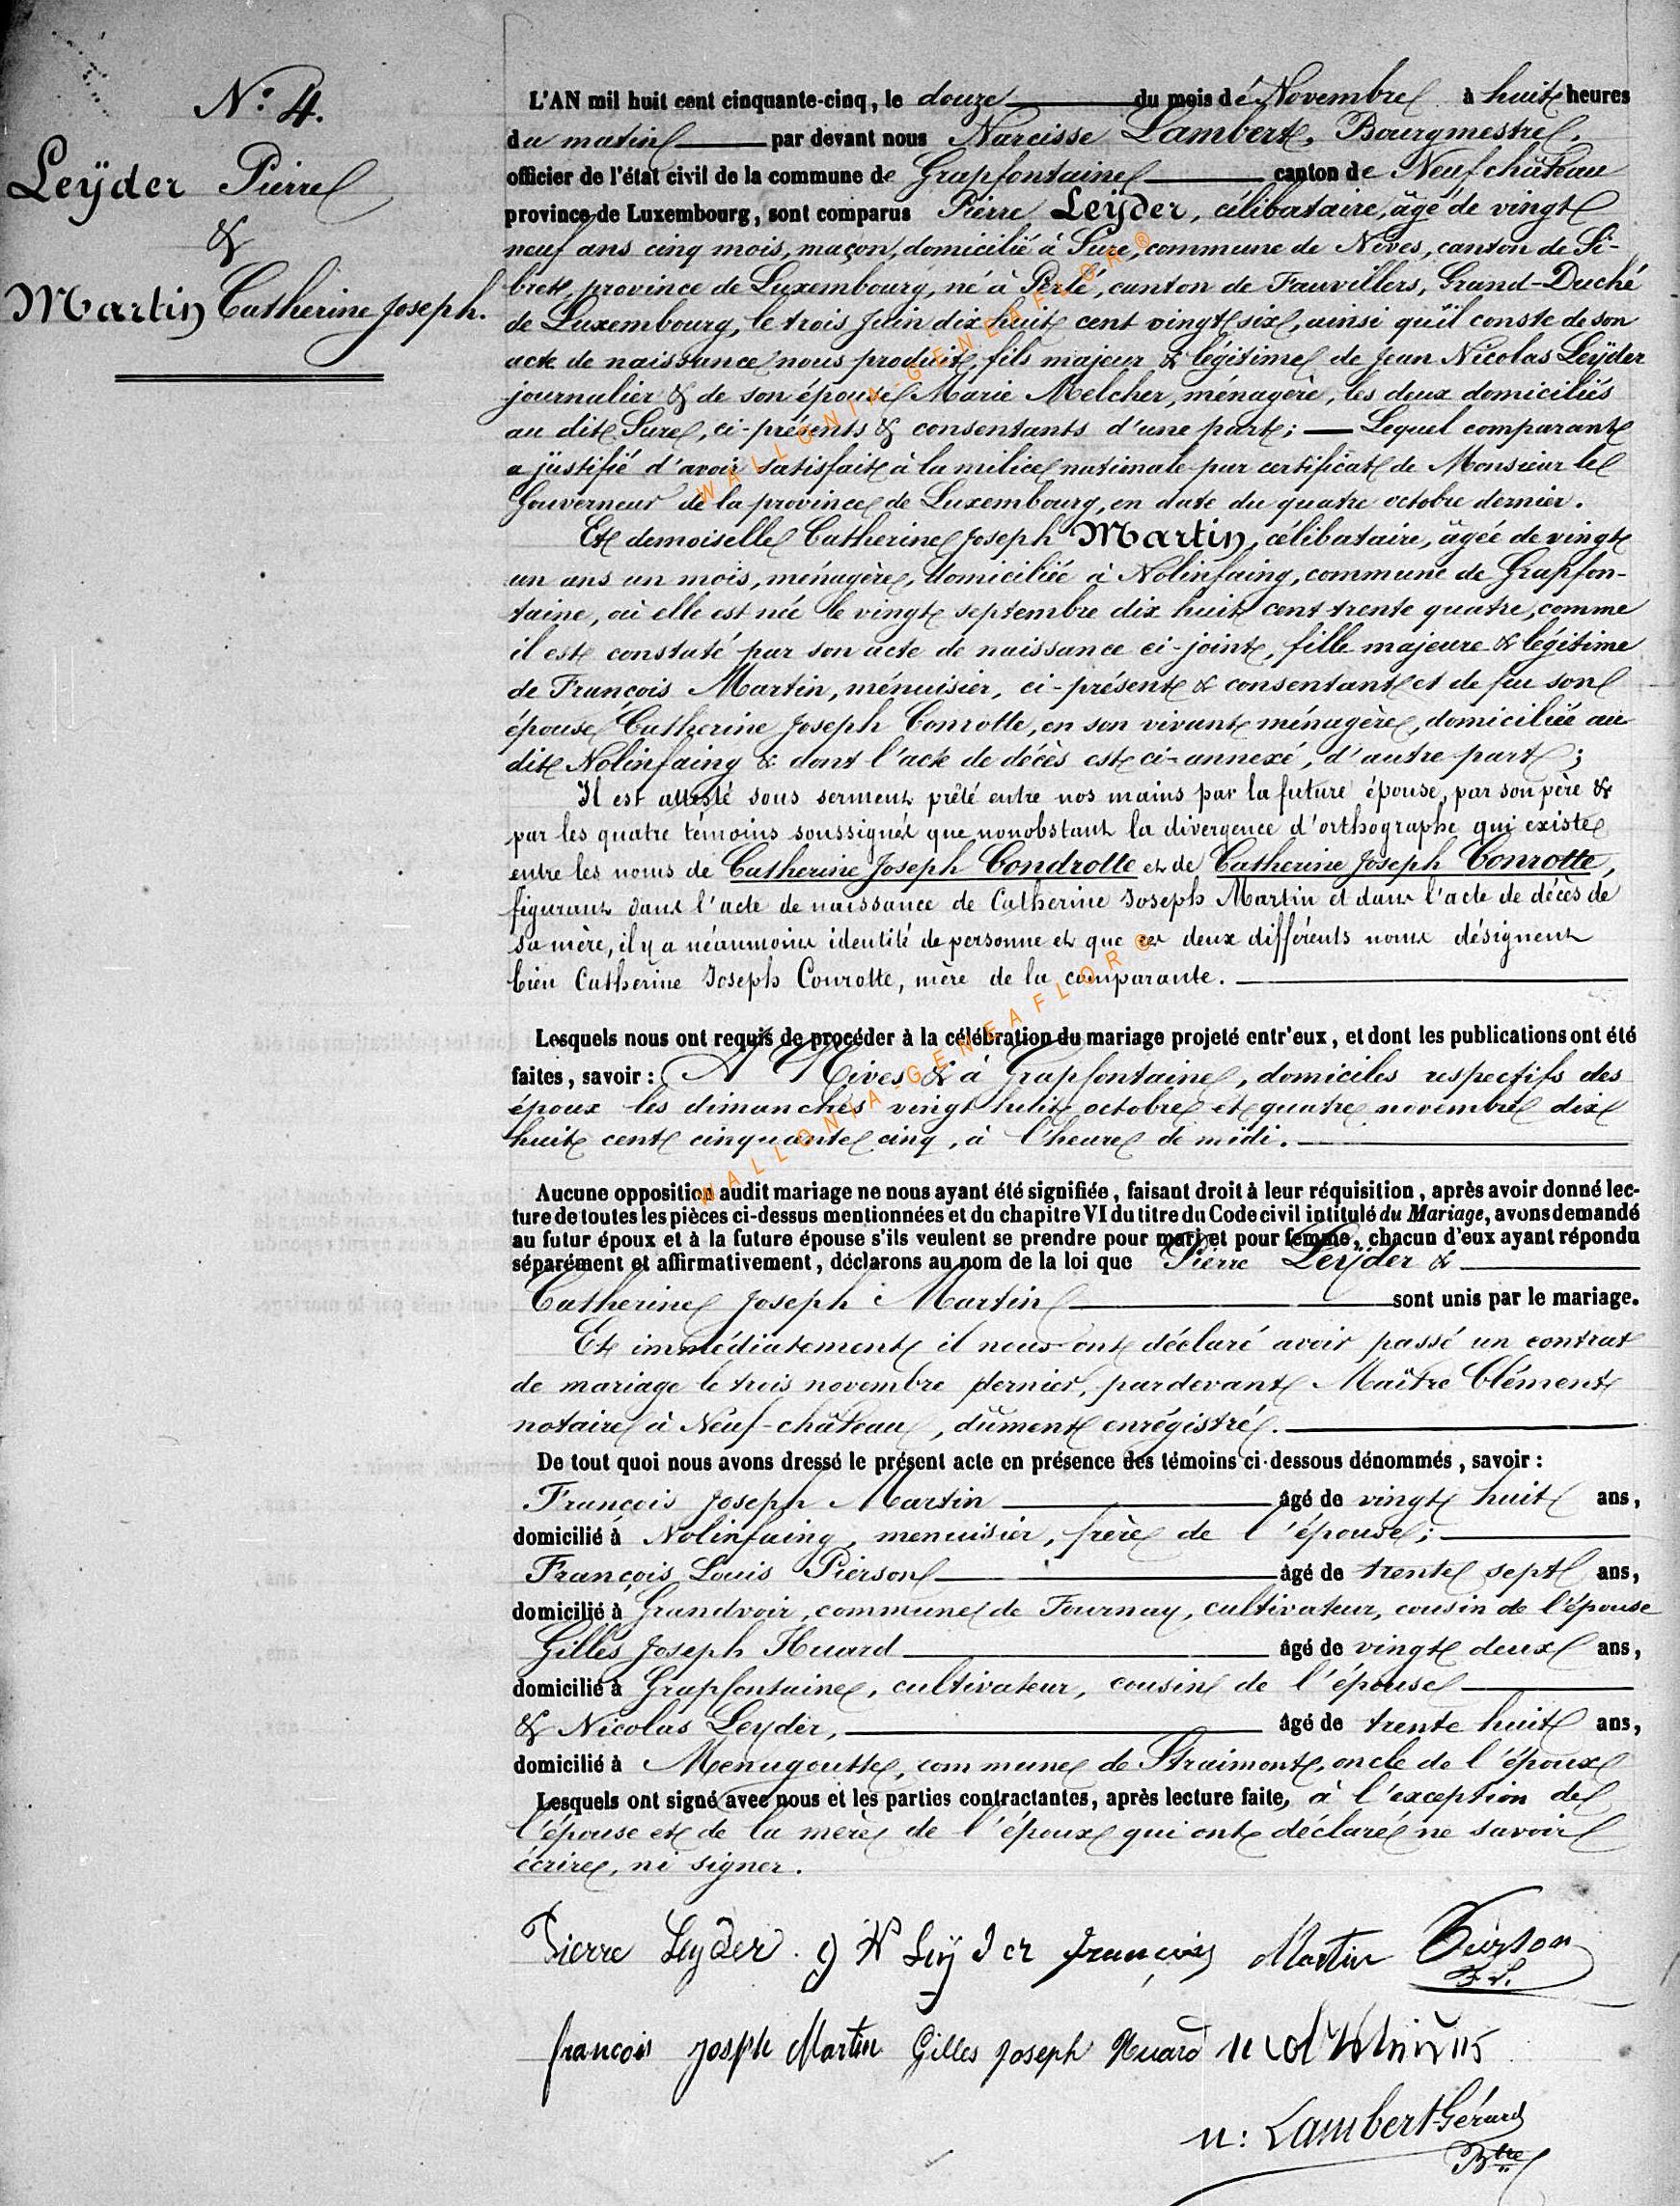 N.° 4.
Leÿder Pierre
&
Martin Catherine Joseph.
L'AN mil huit cent cinquante-cinq, le douze du mois de Novembre à huit heures
du matin par devant nous Narcisse Lambert, Bourgmestre,
officier de l'état civil de la commune de Grapfontaine canton de Neufchâteau
province de Luxembourg, sont comparus Pierre Leÿder, célibataire, âgé de vingt
neuf ans cinq mois, maçon, domicilié à Sure, commune de Nives, canton de Si-
bret, province de Luxembourg, né à Perlé, canton de Fauvillers, Grand-Duché
de Luxembourg, le trois Juin dix huit cent vingt six, ainsi qu'il conste de son
acte de naissance nous produit, fils majeur & légitime de Jean Nicolas Leÿder
journalier & de son épouse Marie Melcher, ménagère, les deux domiciliés
au dit Sure, ci-présents & consentants d'une part; — Lequel comparant
a justifié d'avoir satisfait à la milice nationale par certificat de Monsieur le
Gouverneur de la province de Luxembourg, en date du quatre octobre dernier.
Et demoiselle Catherine Joseph Martin, célibataire, âgée de vingt
un ans un mois, ménagère, domiciliée à Nolinfaing, commune de Grapfon-
taine, où elle est née le vingt septembre dix huit cent trente quatre, comme
il est constaté par son acte de naissance ci-joint, fille majeure & légitime
de François Martin, ménuisier, ci-présent & consentant et de feu son
épouse Catherine Joseph Conrotte, en son vivant ménagère, domiciliée au
dit Nolinfaing & dont l'acte de décès est ci-annexé, d'autre part;
Il est attesté sous serment prêté entre nos mains par la future épouse, par son père &
par les quatre témoins soussignés que nonobstant la divergence d'orthographe qui existe
entre les noms de Catherine Joseph Condrotte et de Catherine Joseph Conrotte,
figurant dans l'acte de naissance de Catherine Joseph Martin et dans l'acte de décès de
sa mère, il y a néanmoins identité de personne et que ces deux différents noms désignent
bien Catherine Joseph Conrotte, mère de la comparante.
Lesquels nous ont requis de procéder à la célébration du mariage projeté entr'eux, et dont les publications ont été
faites, savoir: A Nives & à Grapfontaine, domiciles respectifs des
époux les dimanches vingt huit octobre et quatre novembre dix
huit cent cinquante cinq, à l'heure de midi.
Aucune opposition audit mariage ne nous ayant été signifiée, faisant droit à leur réquisition, après avoir donné lec-
ture de toutes les pièces ci-dessus mentionnées et du chapitre VI du titre du Code civil intitulé du Mariage, avons demandé
au futur époux et à la future épouse s'ils veulent se prendre pour mari et pour femme, chacun d'eux ayant répondu
séparément et affirmativement, déclarons au nom de la loi que Pierre Leÿder &
Catherine Joseph Martin sont unis par le mariage.
Et immédiatement il nous ont déclaré avoir passé un contrat
de mariage le trois novembre dernier, pardevant Maître Clément
notaire à Neuf-château, dûment enrégistré.
De tout quoi nous avons dressé le présent acte en présence des témoins ci-dessous dénommés, savoir:
François Joseph Martin âgé de vingt huit ans,
domicilié à Nolinfaing, menuisier, frère de l'épouse;
François Louis Pierson âgé de trente sept ans,
domicilié à Grandvoir, commune de Tournay, cultivateur, cousin de l'épouse
Gilles Joseph Huard âgé de vingt deux ans,
domicilié à Grapfontaine, cultivateur, cousin de l'épouse
& Nicolas Leyder, âgé de trente huit ans,
domicilié à Menugoutte, commune de Straimont, oncle de l'époux
Lesquels ont signé avec nous et les parties contractantes, après lecture faite, à l'exception de
l'épouse et de la mère de l'époux qui ont déclaré ne savoir
écrire, ni signer.
Pierre Leyder. J N Leÿder François Martin Pierson
F. L.
françois Joseph Martin Gilles Joseph Huard
N: Lambert-Gérard
Btre
WALLONIA-GENEAFLOR®
WALLONIA-GENEAFLOR®